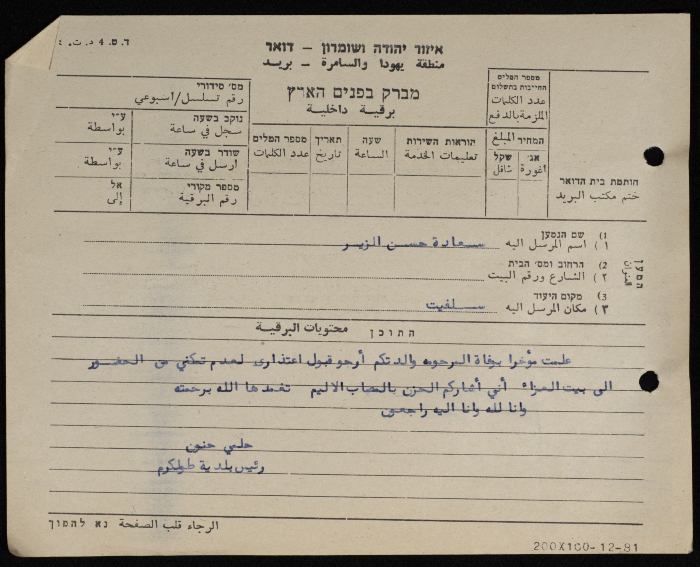 ד.ט. 4 د.ت. ٤
איזור יהודה ושומרון - דואר
منطقة يهودا والسامرة - بريد
מברק בפנים הארץ
برقية داخلية
מס' סידורי
رقم تسلسل/اسبوعي
נוקב בשעה
سجل في ساعة
ע"י
بواسطة
שודר בשעה
ارسل في ساعة
ע"י
بواسطة
מספר מקורי
رقم البرقية
אל
إلى
מספר המלים
החייבות בתשלום
عدد الكلمات
الملزمة بالدفع
המחיר المبلغ
שקל
شاقل
אג'
اغورة
הוראות השירות
تعليمات الخدمة
שעה
الساعة
תאריך
تاريخ
מספר המלים
عدد الكلمات
חותמת בית הדואר
ختم مكتب البريد
המען
العنوان
1) שם הנמען
١) اسم المرسل اليه سعادة حسن الزير
2) הרחוב ומס' הבית
٢) الشارع ورقم البيت
3) מקום היעוד
٣) مكان المرسل اليه سلفيت
התוכן محتويات البرقية
علمت مؤخرا بوفاة المرحومه والدتكم أرجو قبول اعتذاري لعدم تمكني من الحضور
الى بيت العزاء أني أشاركم الحزن بالمصاب الاليم تغمدها الله برحمته
وانا لله وانا اليه راجعون
حلمي حنون
رئيس بلدية طولكرم
الرجاء قلب الصفحة נא להפוך
200X100-12-81